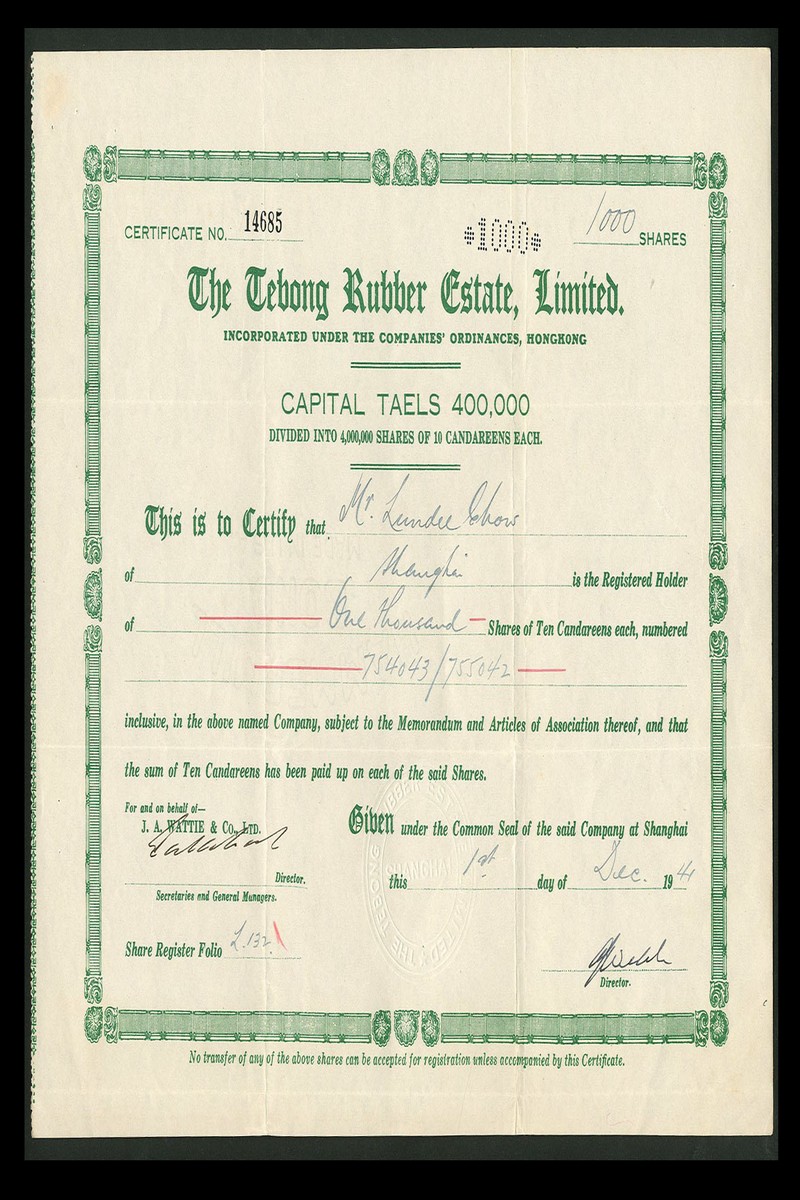 CERTIFICATE NO. 14685 *1000* 1000 SHARES
The Tebong Rubber Estate, Limited.
INCORPORATED UNDER THE COMPANIES' ORDINANCES, HONGKONG
CAPITAL TAELS 400,000
DIVIDED INTO 4,000,000 SHARES OF 10 CANDAREENS EACH.
This is to Certify that Mr. Lundee Chow
of Shanghai is the Registered Holder
of One thousand Shares of Ten Candareens each, numbered
754043/755042
inclusive, in the above named Company, subject to the Memorandum and Articles of Association thereof, and that
the sum of Ten Candareens has been paid up on each of the said Shares.
For and on behalf of—
J. A. WATTIE & CO., LTD.
Given under the Common Seal of the said Company at Shanghai
SHANGHAI
this 1st day of Dec. 1941
Director.
Secretaries and General Managers.
Share Register Folio L.132
Director.
No transfer of any of the above shares can be accepted for registration unless accompanied by this Certificate.